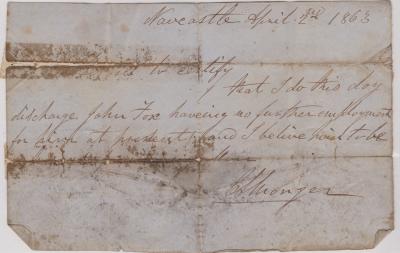 Newcastle April 2nd 1863
to certify
that I do this day
discharge John Fox haveing no further employment
for him at present and I believe him to be